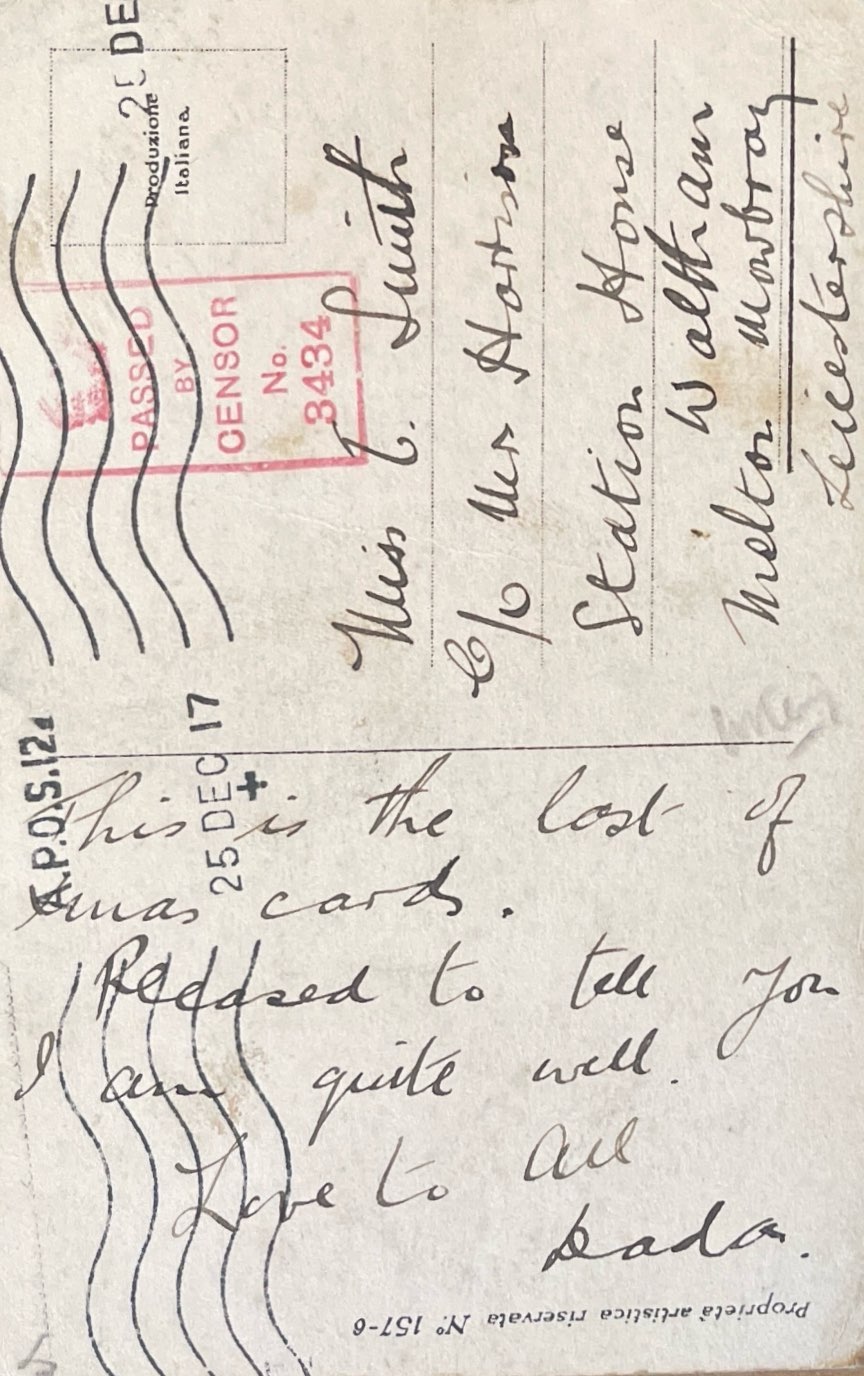 A.P.O.S.12.
25 DEC 17
25 DE
Produzione
Italiana.
PASSED
BY
CENSOR
No.
3434
This is the last of
Xmas cards.
Pleased to tell you
I am quite well.
Love to All
Dada.
Miss G. Smith
C/o Mr Harrison
Station House
Waltham
Melton Mowbray
Leicestershire
Proprietà artistica riservata N.° 157-6